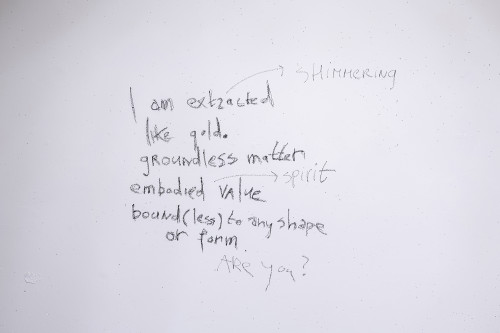 SHIMMERING
I am extracted
like gold.
groundless matter
embodied value
spirit
bound(less) to any shape
or form.
ARE you?